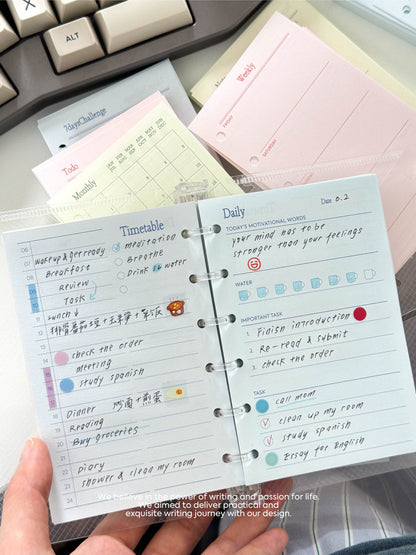 ALT
7daysChallenge
Todo
Monthly
JAN FEB MAR APR MAY JUN
JUL AUG SEP OCT NOV DEC
Weekly
FRIDAY
SATURDAY
Timetable
06
07 Wake up & get ready
08 Breakfast
Review
Task
11 Lunch ↓
12
meditation
Breathe
Drink water
14 check the order
meeting
study spanish
18 Dinner
Reading
20 Buy groceries
22 Diary
23 shower & clean my room
24
Daily
Date 0.2
TODAY'S MOTIVATIONAL WORDS
your mind has to be
stronger than your feelings
WATER
IMPORTANT TASK
1 Finish introduction
2 Re-read & submit
3 check the order
TASK
call mom
clean up my room
study spanish
Essay for English
We believe in the power of writing and passion for life.
We aimed to deliver practical and
exquisite writing journey with our design.